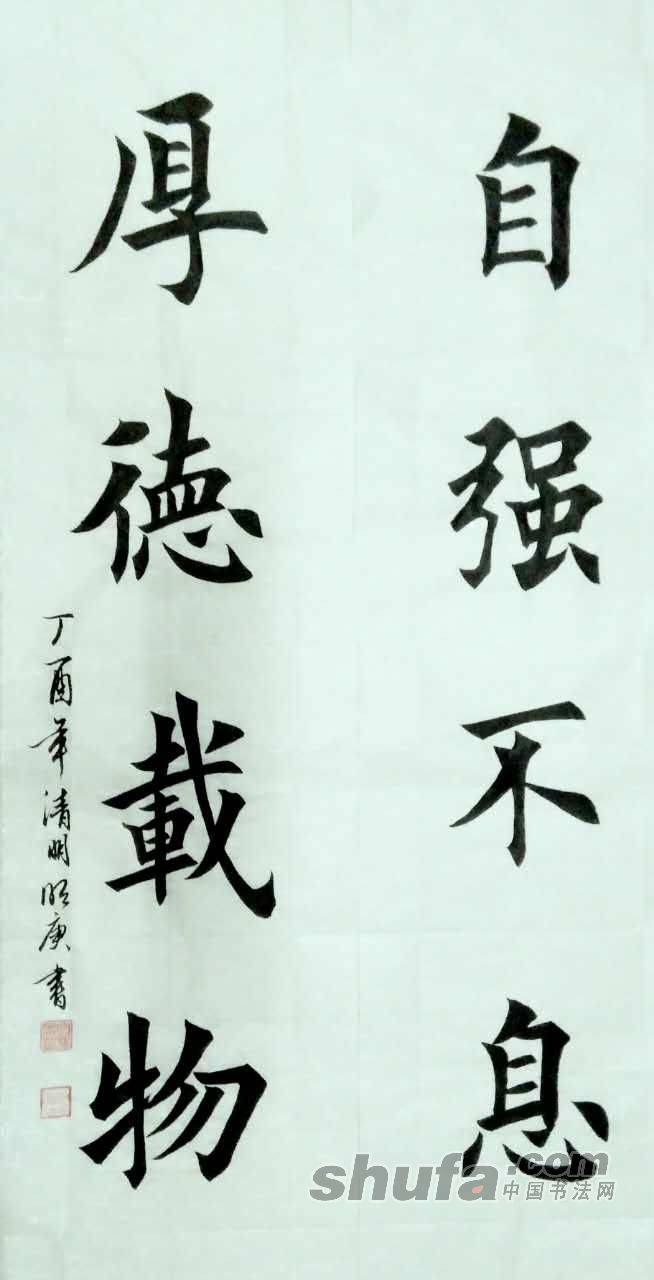 自强不息
厚德載物
丁酉年清明明庚書
shufa.com
中国书法网